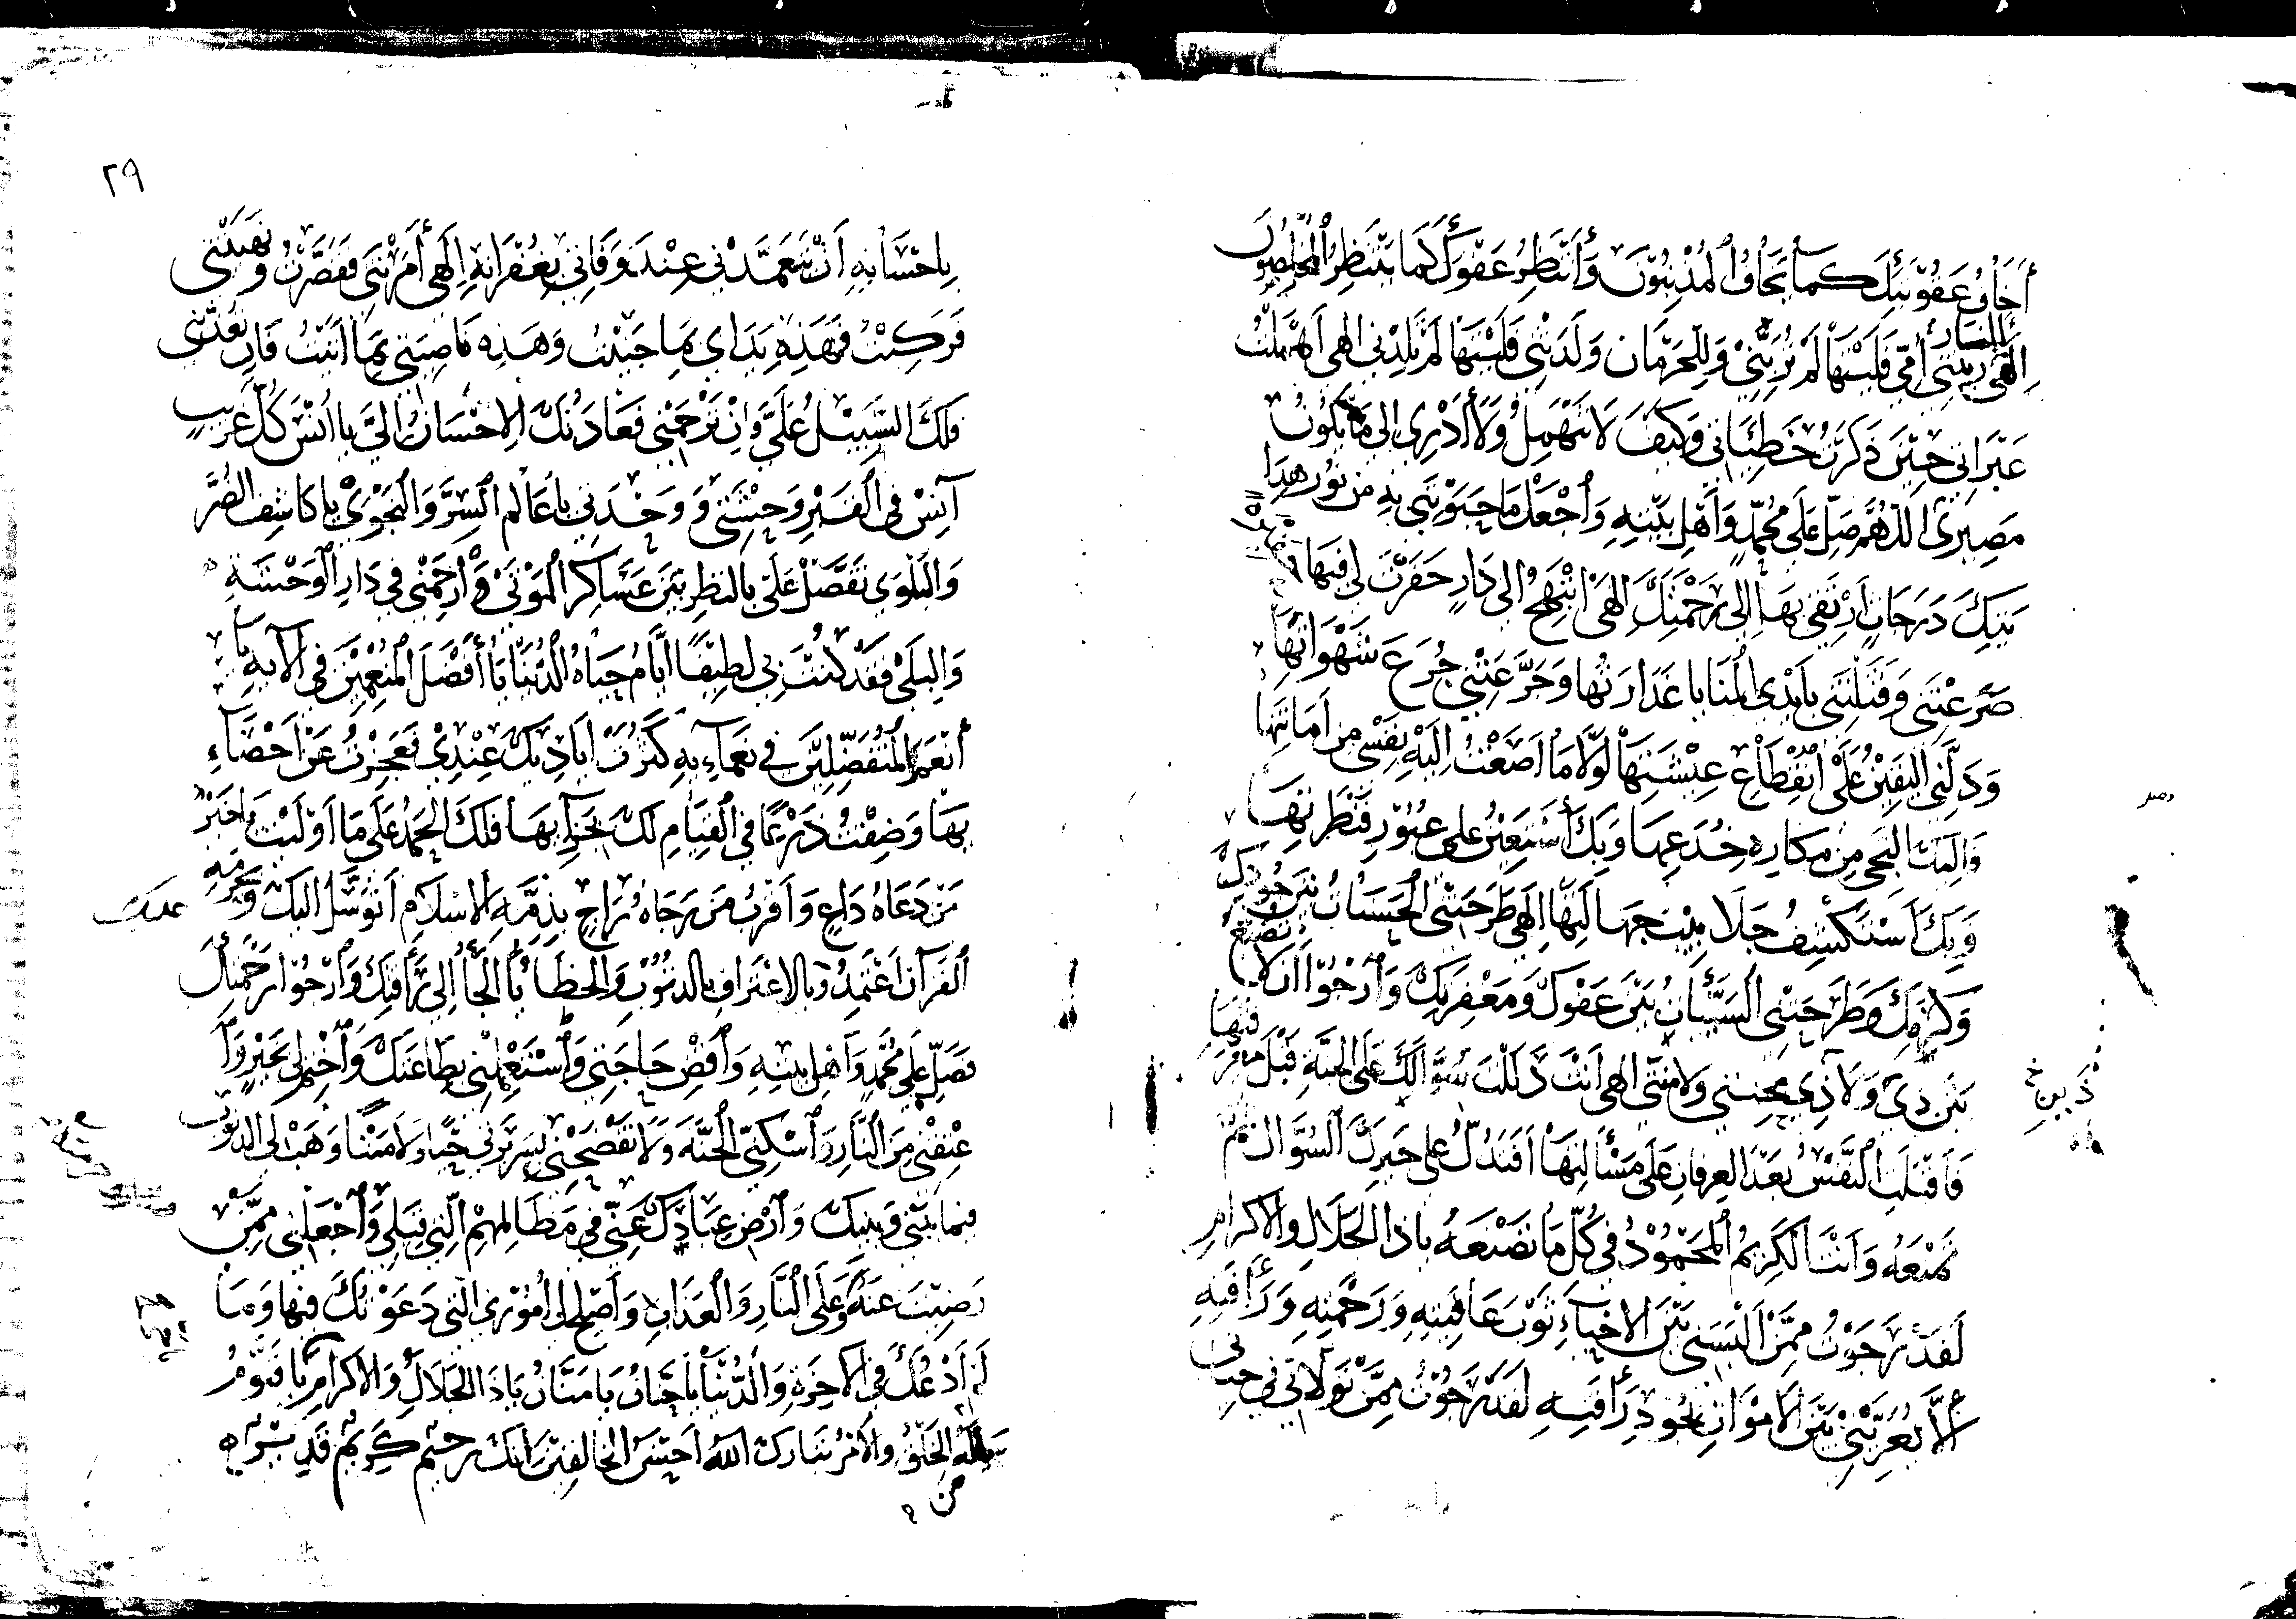 أَخَافُ عَقُوبَتَكَ كَمَا يَخَافُ المُذْنِبُونَ وَأَنْتَظِرُ عَفْوَكَ كَمَا يَنْتَظِرُ المُخْلِصُونَ
إِلهي للنار رَبَّتْني أُمّي فَلَيْتَها لَمْ تُرَبِّني وَلِلحرمان وَلَدَتْني فَلَيْتَها لَمْ تَلِدْني الهي انْهَمَلَتْ
عَبَراتي حِيْنَ ذَكَرْتُ خَطِيئاتي وَكَيْفَ لا تَنْهَمِلُ وَلا أَدْرِي الى ما يَكُونُ
مَصِيري اللّهُمَّ صَلِّ عَلَى مُحَمَّدٍ وَأَهْلِ بَيْتِهِ وَاجْعَلْ ما حَبَوْتَني بِهِ مِنْ نُورِ هُدَا
يَتِكَ دَرَجاتٍ أَرْتَقي بِها إِلى رَحْمَتِكَ الهي أَبْتَهِجُ الى دَارٍ حَفَرَتْ لي فيها
صَرَعْتَني وَقَتَلَتْني بِأَيْدِي المَنايا غَدَّارَتُها وَجَرَّعَتْني جُرَعَ شَهَوَاتِها
وَدَلَّني اليَقِيْنُ عَلَى انْقِطَاعِ عِيْشَتِهَا لَوْلا ما أَصَغْتُ إِلَيْهِ نَفْسي مِنْ أَمَانيها
وَاليكَ التجي مِنْ مَكارِهِ خُدَعِها وَبِكَ أَسْتَعِيْنُ على عُبُورِ قَنْطَرَتِها
وَبِكَ أَسْتَكْشِفُ جَلابِيْبَ الهي طَرَحَتْني الحَسَناتُ بَيْنَ جُودِكَ
وَكَرَمِكَ وَطَرَحَتْني السَّيِّئَاتُ بَيْنَ عَفْوِكَ وَمَغْفِرَتِكَ وَأَرْجُوا أَن لا تُضيعَ
بَيْنَ ذي وَلا ذي مِحْنَتي وَلا مُنْيَتي الهي أنْتَ دَلَلْتَ سُؤالَكَ عَلَى الجنّة قَبْلَ فيها
وَأَقْبَلَتِ النَّفْسُ بَعْدَ العِرْفانِ عَلَى مَسْأَلَتِهَا أَفَتَدُلُّ على خَيرِكَ السُّؤالَ ثُمَّ
تَمْنَعُهُ وَأَنْتَ الكَرِيْمُ المَحْمُوْدُ في كُلِّ ما تَصْنَعُهُ يا ذا الجَلالِ والاكرامِ
لَقَدْ رَجَوْتُ مِمَّنْ أَلْبَسَني بَيْنَ الاحْياءِ ثَوْبَ عَافِيَتِهِ وَرَحْمَتِهِ وَرَأفَتِهِ
أَلّا يُعَرِّيَني بَيْنَ الأمْوَاتِ بِجُودِ رَأفَتِهِ لَقَدْ رَجَوْتُ مِمَّنْ تَوَلاني في حياتي
٢٩
بِاحْسَانِهِ أَنْ يَتَغَمَّدَني عِنْدَ وَفَاتي بِغُفْرَانِهِ إِلهي أَمَرْتَني فَقَصَّرْتُ وَنَهَيْتَني
فَرَكِبْتُ فَهَذِهِ يَدَاي بِمَا جَنَيْتُ وَهَذِهِ نَاصِيَتي بِمَا أَتَيْتُ فَإِن تُعَذِّبْني
فَلَكَ السَّبِيْلُ عَلَيَّ وَإِنْ تَرْحَمْني فَعَادَتُكَ الاحْسَانُ إِلَيَّ يا أُنْسَ كُلِّ غَرِيبٍ
آنِسْ في القَبْرِ وَحْشَتي وَوَحْدَتي يا عَالِمَ السِّرِّ وَالنَّجْوَى يا كَاشِفَ الضُّرِّ
وَالبَلْوَى تَفَضَّلْ عَلَيَّ بالنظرِ بَيْنَ عَسَاكِرِ المَوْتَى وَارْحَمْني في دَارِ الوَحْشَةِ
وَالبِلَى فَقَدْ كُنْتَ بي لَطِيفًا أَيَّامَ حَيَاةِ الدُّنْيَا يَا أَفْضَلَ المُنْعِمِيْنَ في آلآيِهِ يا
أَنْعَمَ المُتَفَضِّلِيْنَ في نَعْمَآيِهِ كَثُرَتْ أَيَادِيكَ عِنْدِيْ فَعَجَزْتُ عَنْ إِحْصَاءِ
بِهَا وَضِقْتُ ذَرْعًا في القِيَامِ لَكَ بِجَزَآئِهَا فَلَكَ الحَمْدُ عَلَى مَا أَوْلَيْتَ يا خَيْرَ
مَنْ دَعَاهُ دَاعٍ وَأَقْرَبُ مَنْ رَجَاهُ رَاجٍ بِذِمَّةِ الإسْلامِ أَتَوَسَّلُ اليكَ وَبِحُرْمَةِ عليك
القُرآنِ أَعْتَمِدُ وَبالاعْتِرَافِ بالذنُوبِ والخَطَايا أَلْجَأُ إِلى رَأفَتِكَ وَأَرْجُوا رَحْمَتَكَ
فَصَلِّ عَلَى مُحَمَّدٍ وَأَهْلِ بَيْتِهِ وَاقْضِ حَاجَتي وَاسْتَعْمِلْني بِطَاعَتِكَ وَاخْتِمْ لي بِخَيْرٍ وَا
عْتِقْني مِنَ النّارِ وَأسْكِنّي الجَنَّةَ وَلا تَفْضَحْني بِسَرِيرَتي حَيًّا وَلا مَيِّتًا وَهَبْ لي الذنُوبَ
فيما بَيْني وَبينك وَارْضِ عِبَادَكَ عَنّي في مَظَالِمِهِمْ الّتي قِبَلي وَاجْعَلْني مِمَّنْ
رَضِيْتَ عَنْهُ عَلَى النَّارِ وَالعَذَابِ وَأَصْلِحْ لي أُمُوْري الّتي دَعَوْتُكَ فيها وَمَا
لَمْ أَدْعُكَ في الآخِرَةِ وَالدُّنْيَا يا حَنّانُ يا مَنّانُ يَا ذَا الجَلالِ وَالاكرَامِ يا قَيُّوْمُ
مَن لَهُ الخَلْقُ والأمْرُ تَبَارَكَ اللّهُ أَحْسَنُ الخالقينَ إِنَّكَ رحيم كَرِيمٌ قَدِيرٌ